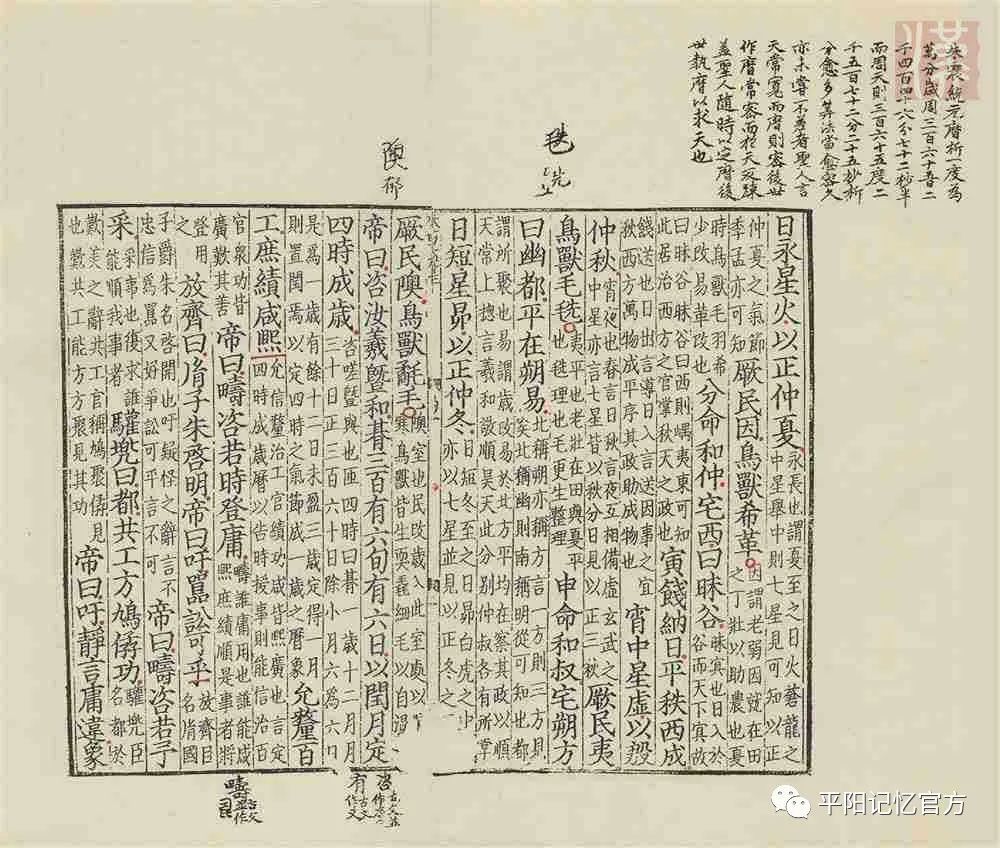 朱裳統元曆析一度為
萬分歲周三百六十五日二
千四百四十六分七十二秒半
而周天則三百六十五度二
千五百七十二分二十五秒析
分愈多算法當愈密久
亦未嘗不差者聖人言
天常寬而曆則密後世
作曆常密而於天反疎
蓋聖人随時以定曆後
世執曆以求天也
毨
隩郁
日永星火以正仲夏永長也謂夏至之日火蒼龍之中星舉中則七星見可知以正
仲夏之氣節季孟亦可知厥民因鳥獸希革因謂老弱因就在田之丁壯以助農也夏
時鳥獸毛羽希少改易革改也分命和仲宅西曰昧谷昧冥也日入於谷而天下冥故
曰昧谷昧谷曰西則嵎夷東可知此居治西方之官掌秋天之政也寅餞納日平秩西成
餞送也日出言導日入言送因事之宜秋西方萬物成平序其政助成物也宵中星虛以殷
仲秋宵夜也春言日秋言夜互相備虛玄武之中星亦言七星皆以秋分日見以正三秋厥民夷
鳥獸毛毨夷平也老壯在田與夏平也毨理也毛更生整理申命和叔宅朔方
曰幽都平在朔易北稱朔亦稱方言一方則三方見矣北稱幽則南稱明從可知也都
謂所聚也易謂歲改易於北方平均在察其政以順天常上揔言羲和敬順昊天此分别仲叔各有所掌
日短星昴以正仲冬日短冬至之日昴白虎之中亦以七星並見以正冬之
厥民隩鳥獸氄毛隩室也民改歲入此室處以寒鳥獸皆生耎毳細毛以自溫
帝曰咨汝羲暨和朞三百有六旬有六日以閏月定
四時成歲咨嗟暨與也匝四時曰朞一歲十二月月三十日正三百六十日除小月六為六日
是為一歲有餘十二日未盈三歲足得一月則置閏焉以定四時之氣節成一歲之曆象允釐百
工庶績咸熙允信釐治工官績功咸皆熙廣也言定四時成歲曆以告時授事則能信治百
官衆功皆廣歎其善帝曰疇咨若時登庸疇誰庸用也誰能咸熙庶績順是事者將
登用之放齊曰胤子朱啓明帝曰吁嚚訟可乎放齊臣名胤國
子爵朱名啓開也吁疑怪之辭言不忠信為嚚又好爭訟可乎言不可帝曰疇咨若予
采采事也復求誰能順我事者驩兜曰都共工方鳩僝功驩兜臣名都於
歎美之辭共工官稱鳩聚僝見也歎共工能方方聚見其功帝曰吁靜言庸違象
咨
有
疇
平阳记忆官方